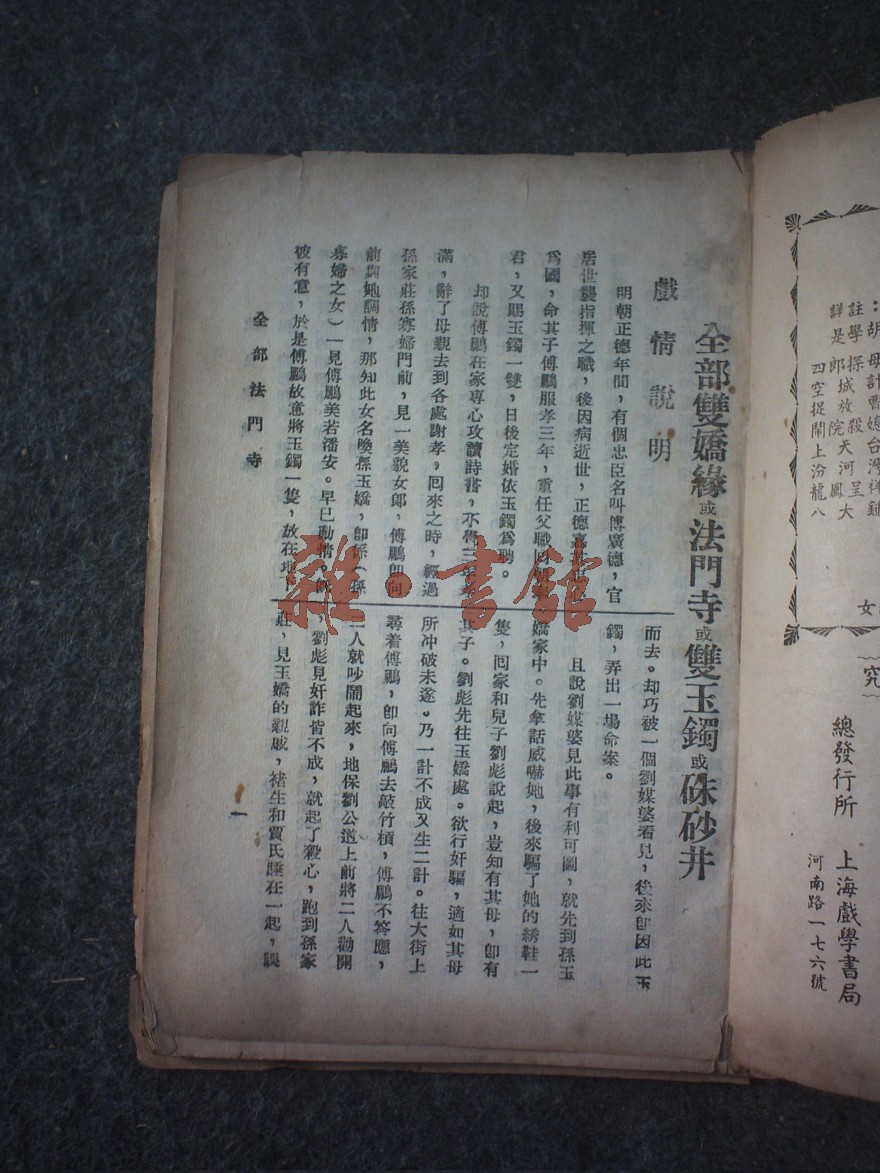 全部雙嬌緣或法門寺或雙玉鐲或硃砂井
戲情說明
明朝正德年間，有個忠臣名叫傅廣德，官
居世襲指揮之職，後因病逝世，正德嘉其忠心
爲國，命其子傅鵬服孝三年，重任父職
君，又賜玉鐲一雙，日後定婚依玉鐲爲聘。
却說傅鵬在家專心攻讀詩書，不覺三年
滿，辭了母親去到各處謝孝，囘來之時，經過
孫家莊孫寡婦門前，見一美貌女郎，傅鵬卽向
前與她調情，那知此女名喚孫玉嬌，卽係（孫
寡婦之女）一見傅鵬美若潘安。早已動情。
彼有意，於是傅鵬故意將玉鐲一隻，放在地下
而去。却巧被一個劉媒婆看見，後來卽因此玉
鐲，弄出一場命案。
且說劉媒婆見此事有利可圖，就先到孫玉
嬌家中。先拿話威嚇她，後來騙了她的綉鞋一
隻，囘家和兒子劉彪說起，豈知有其母，卽有
其子。劉彪先往玉嬌處。欲行奸騙，適如其母
所冲破未遂。乃一計不成又生二計。往大街上
尋着傅鵬，卽向傅鵬去敲竹槓，傅鵬不答應，
二人就吵鬧起來，地保劉公道上前將二人勸開
，劉彪見奸詐皆不成，就起了殺心，跑到孫家
莊，見玉嬌的親戚，褚生和賈氏睡在一起，誤
全部法門寺
一
雜·書館
總發行所 上海戲學書局
河南路一七六號
究
女